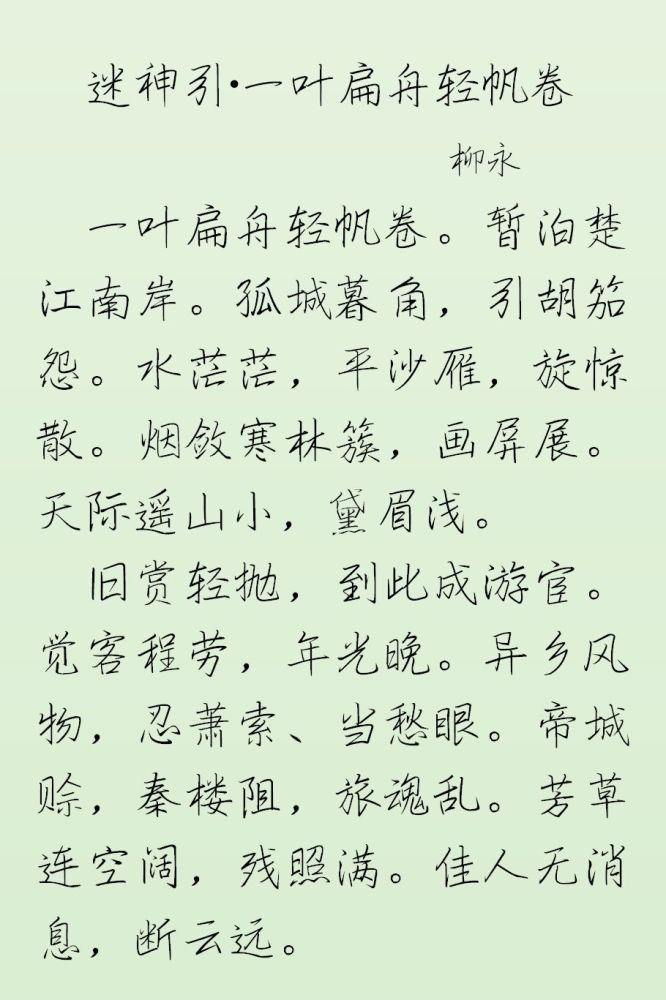 迷神引•一叶扁舟轻帆卷
柳永
一叶扁舟轻帆卷。暂泊楚
江南岸。孤城暮角，引胡笳
怨。水茫茫，平沙雁，旋惊
散。烟敛寒林簇，画屏展。
天际遥山小，黛眉浅。
旧赏轻抛，到此成游宦。
觉客程劳，年光晚。异乡风
物，忍萧索、当愁眼。帝城
赊，秦楼阻，旅魂乱。芳草
连空阔，残照满。佳人无消
息，断云远。